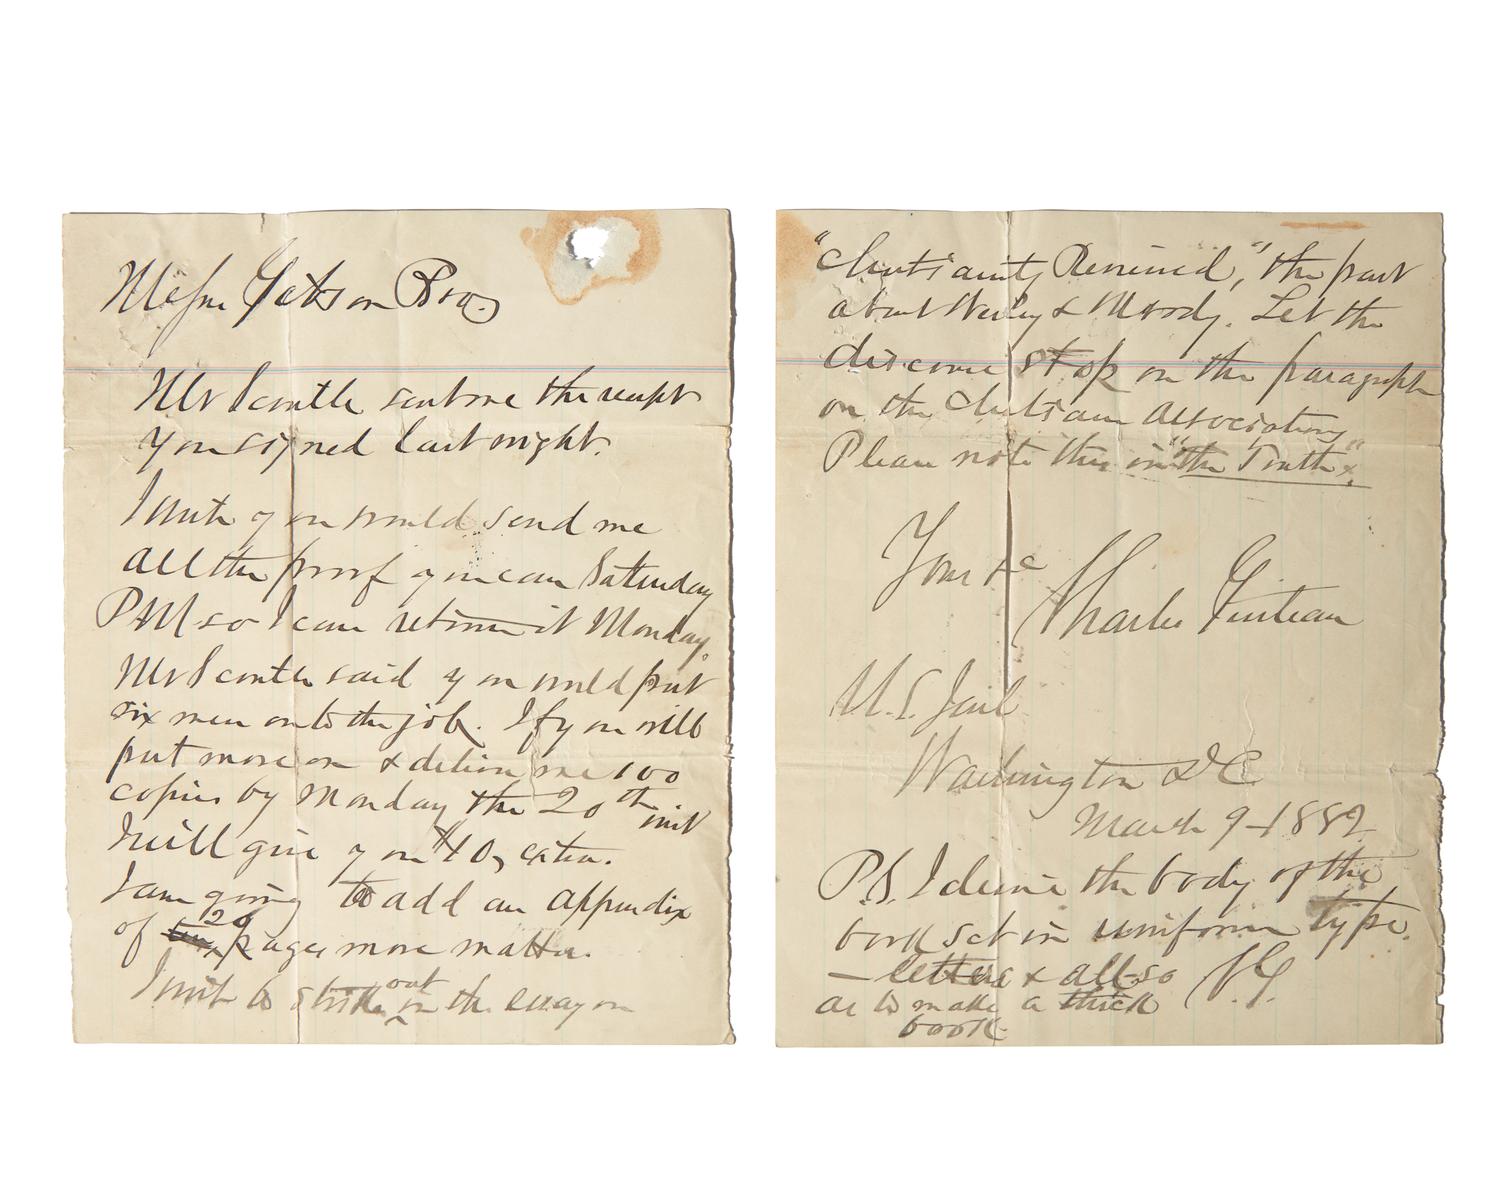 Messrs Gibson Bros.
Mr Scoville sent me the receipt
you signed last night.
I wish you would send me
all the proof you can Saturday
PM so I can return it Monday.
Mr Scoville said you would put
six men onto the job. If you will
put more on & deliver me 100
copies by Monday the 20th inst
I will give you $10, extra.
I am going to add an appendix
of 20 pages more matter.
I wish to strike out in the essay on
"Christianity Reviewed," the part
about Wesley & Moody. Let the
discourse stop on the paragraph
on the Christian Associations
Please note this in "the Truth".
Yours &c
Charles Guiteau
U.S. Jail
Washington DC
March 9-1882
P.S. I desire the body of the
book set in uniform type.
— letters & all so
as to make a thick
book
C.G.